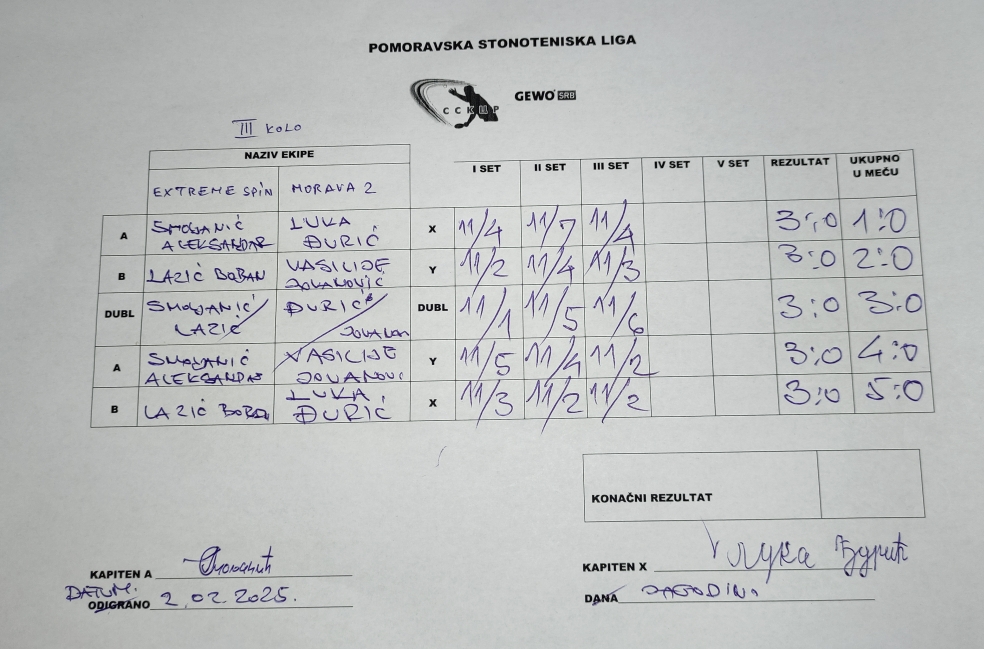 POMORAVSKA STONOTENISKA LIGA
CCKЦP GEWO SRB
III KOLO
NAZIV EKIPE I SET II SET III SET IV SET V SET REZULTAT UKUPNO U MEČU
EXTREME SPIN MORAVA 2
A SMOJANIĆ ALEKSANDAR LUKA ĐURIĆ X 11/4 11/7 11/4 3:0 1:0
B LAZIĆ BOBAN VASILIJE JOVANOVIĆ Y 11/2 11/4 11/3 3:0 2:0
DUBL SMOJANIĆ/ LAZIĆ ĐURIĆ/ DUBL 11/1 11/5 11/6 3:0 3:0
A SMOJANIĆ ALEKSANDAR VASILIJE JOVANOVI Y 11/5 11/4 11/2 3:0 4:0
B LAZIĆ BOBAN LUKA ĐURIĆ X 11/3 11/2 11/2 3:0 5:0
KONAČNI REZULTAT
KAPITEN A KAPITEN X Лука Ђурић
DATUM.
ODIGRANO 2.02.2025. DANA JAGODINA